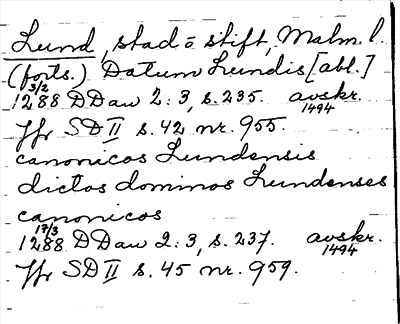 Lund, stad o stift, Malm. l.
(forts.) Datum Lundis [abl.]
3/2
1288 DDaw 2:3, s. 235. avskr.
1494
Jfr SD II s. 42 nr. 955.
canonicos Lundensis
dictos dominos Lundenses
canonicos
17/3
1288 DDaw 2:3, s. 237. avskr.
1494
Jfr SD II s. 45 nr. 959.